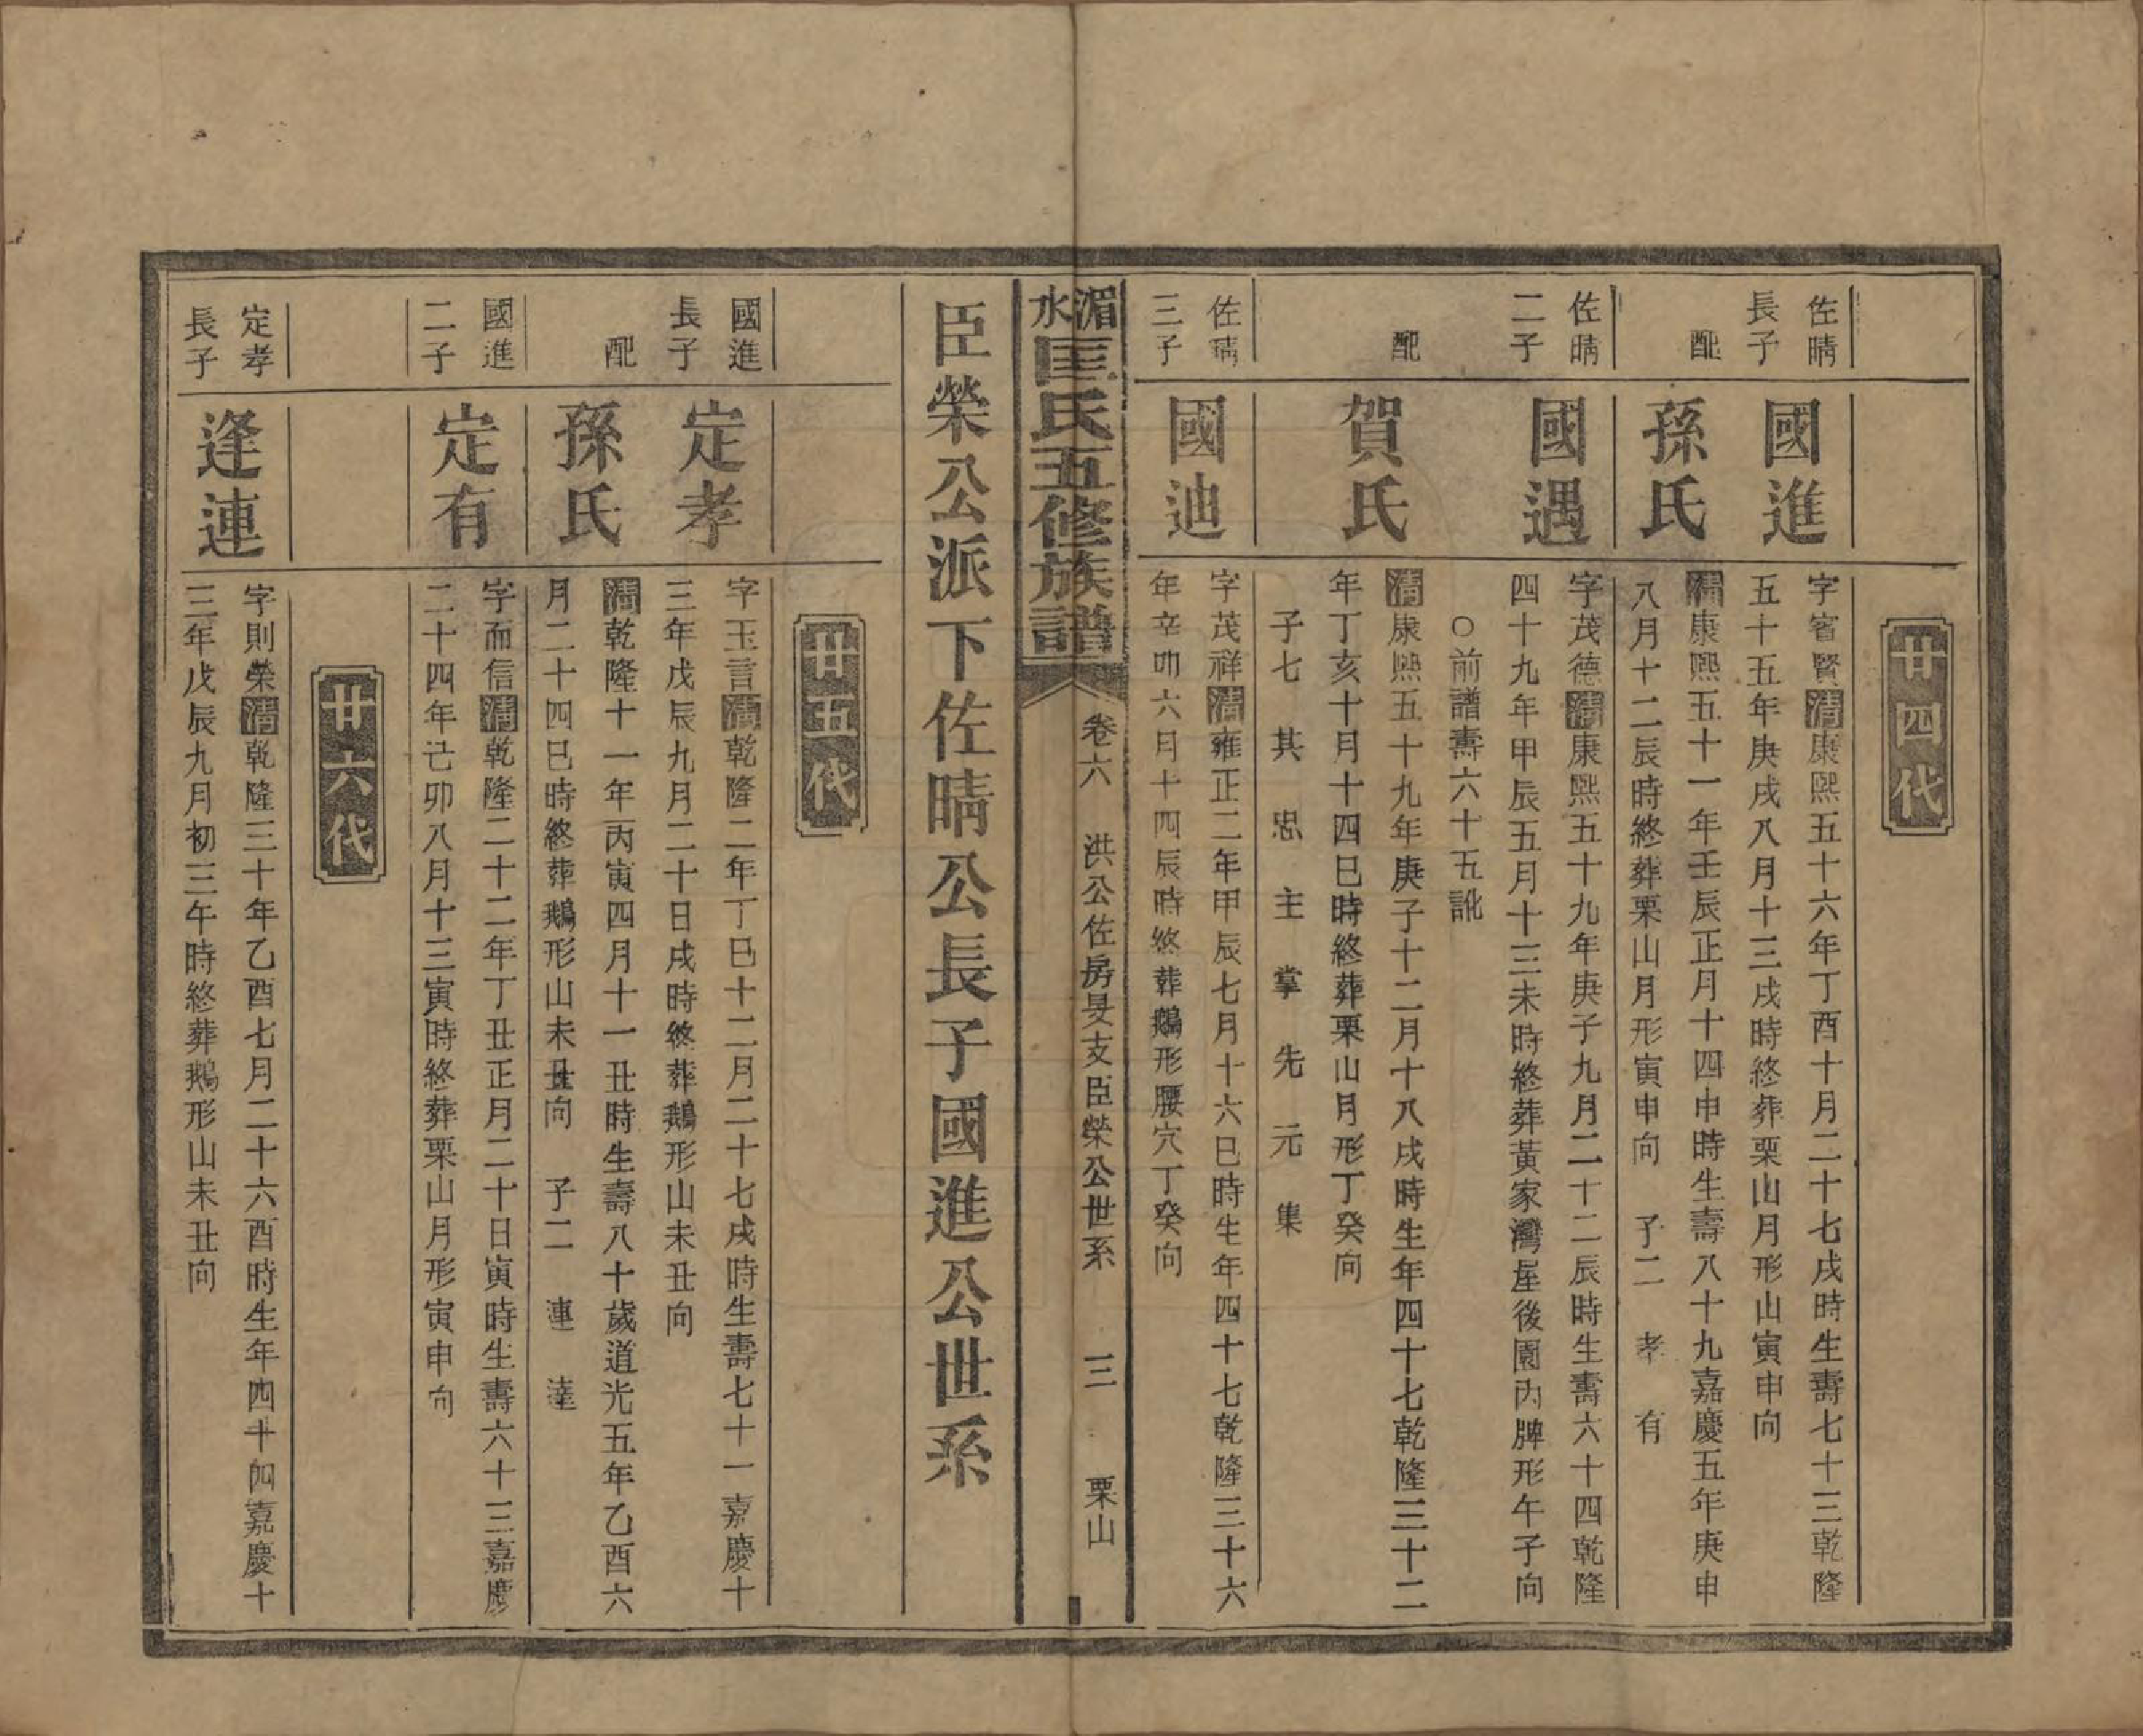 廿四代
佐晴
長子
國進
字睿賢清康熙五十六年丁酉十月二十七戌時生壽七十三乾隆
五十五年庚戌八月十三戌時終葬栗山月形山寅申向
配
孫氏
清康熙五十一年壬辰正月十四申時生壽八十九嘉慶五年庚申
八月十二辰時終葬栗山月形寅申向 子二 孝 有
佐晴
二子
國遇
字茂德清康熙五十九年庚子九月二十二辰時生壽六十四乾隆
四十九年甲辰五月十三未時終葬黃家灣屋後園內脾形午子向
○前譜壽六十五訛
配
賀氏
清康熙五十九年庚子十二月十八戌時生年四十七乾隆三十二
年丁亥十月十四巳時終葬栗山月形丁癸向
子七 其 忠 主 掌 先 元 集
佐晴
三子
國迪
字茂祥清雍正二年甲辰七月十六巳時生年四十七乾隆三十六
年辛卯六月十四辰時終葬鵝形腰穴丁癸向
湄水匡氏五修族譜
卷六 洪公佐房旻支臣榮公世系 三 栗山
臣榮公派下佐晴公長子國進公世系
廿五代
國進
長子
定孝
字玉言清乾隆二年丁巳十二月二十七戌時生壽七十一嘉慶十
三年戊辰九月二十日戌時終葬鵝形山未丑向
配
孫氏
清乾隆十一年丙寅四月十一丑時生壽八十歲道光五年乙酉六
月二十四巳時終葬鵝形山未丑向 子二 連 達
國進
二子
定有
字而信清乾隆二十二年丁丑正月二十日寅時生壽六十三嘉慶
二十四年己卯八月十三寅時終葬栗山月形寅申向
廿六代
定孝
長子
逢連
字則榮清乾隆三十年乙酉七月二十六酉時生年四十四嘉慶十
三年戊辰九月初三午時終葬鵝形山未丑向